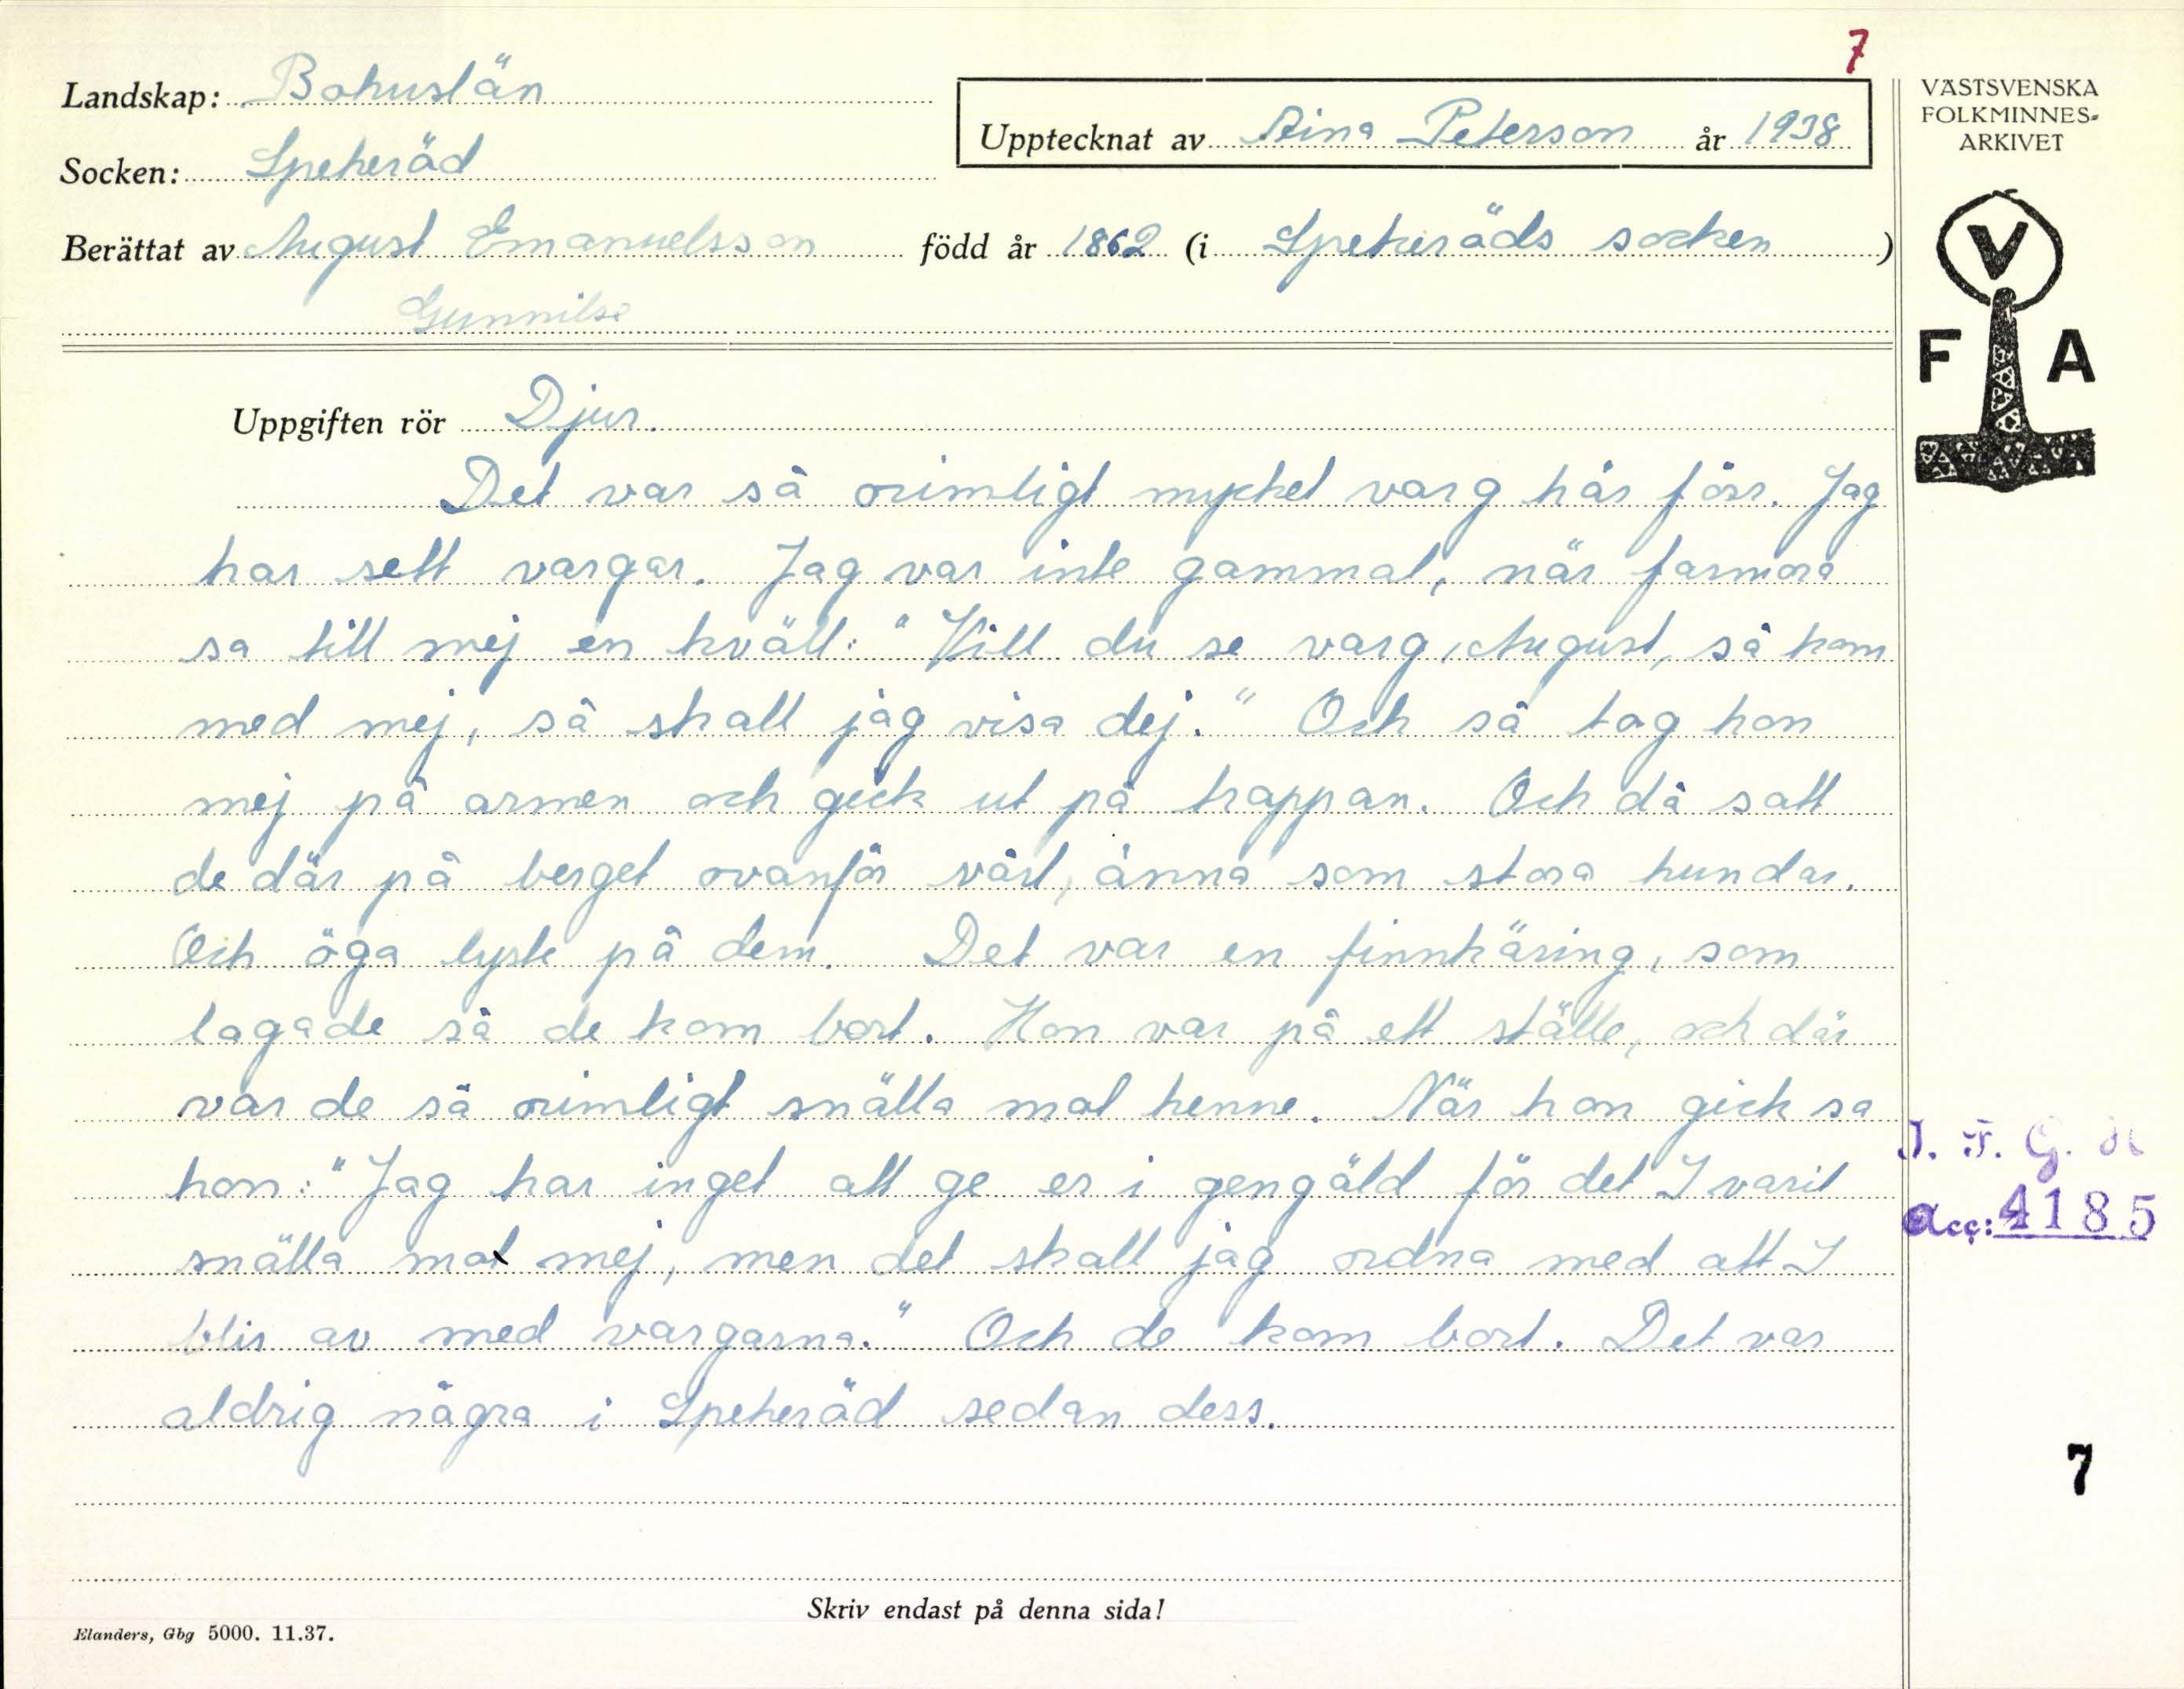 7
Landskap: Bohuslän
Upptecknat av Aina Peterson år 1938
Socken: Spekeröd
Berättat av August Emanuelsson född år 1862 (i Spekeröds socken)
Gunnilse
VÄSTSVENSKA
FOLKMINNES-
ARKIVET
V
F A
Uppgiften rör Djur.
Det var så orimligt mycket varg här förr. Jag
har sett vargar. Jag var inte gammal, när farmora
sa till mej en kväll: "Vill du se varg, August, så kom
med mej, så skall jag visa dej." Och så tog hon
mej på armen och gick ut på trappan. Och då satt
de där på berget ovanför vårt, änna som stora hundar.
Och öga lyste på dem. Det var en finnkäring, som
lagade så de kom bort. Hon var på ett ställe, och där
var de så orimligt snälla mot henne. När hon gick sa
hon: "Jag har inget att ge er i gengäld för det I varit
snälla mot mej, men det skall jag ordna med att I
blir av med vargarna." Och de kom bort. Det var
aldrig några i Spekeröd sedan dess.
I. F. G. H
Acc: 4185
7
Skriv endast på denna sida!
Elanders, Gbg 5000. 11.37.